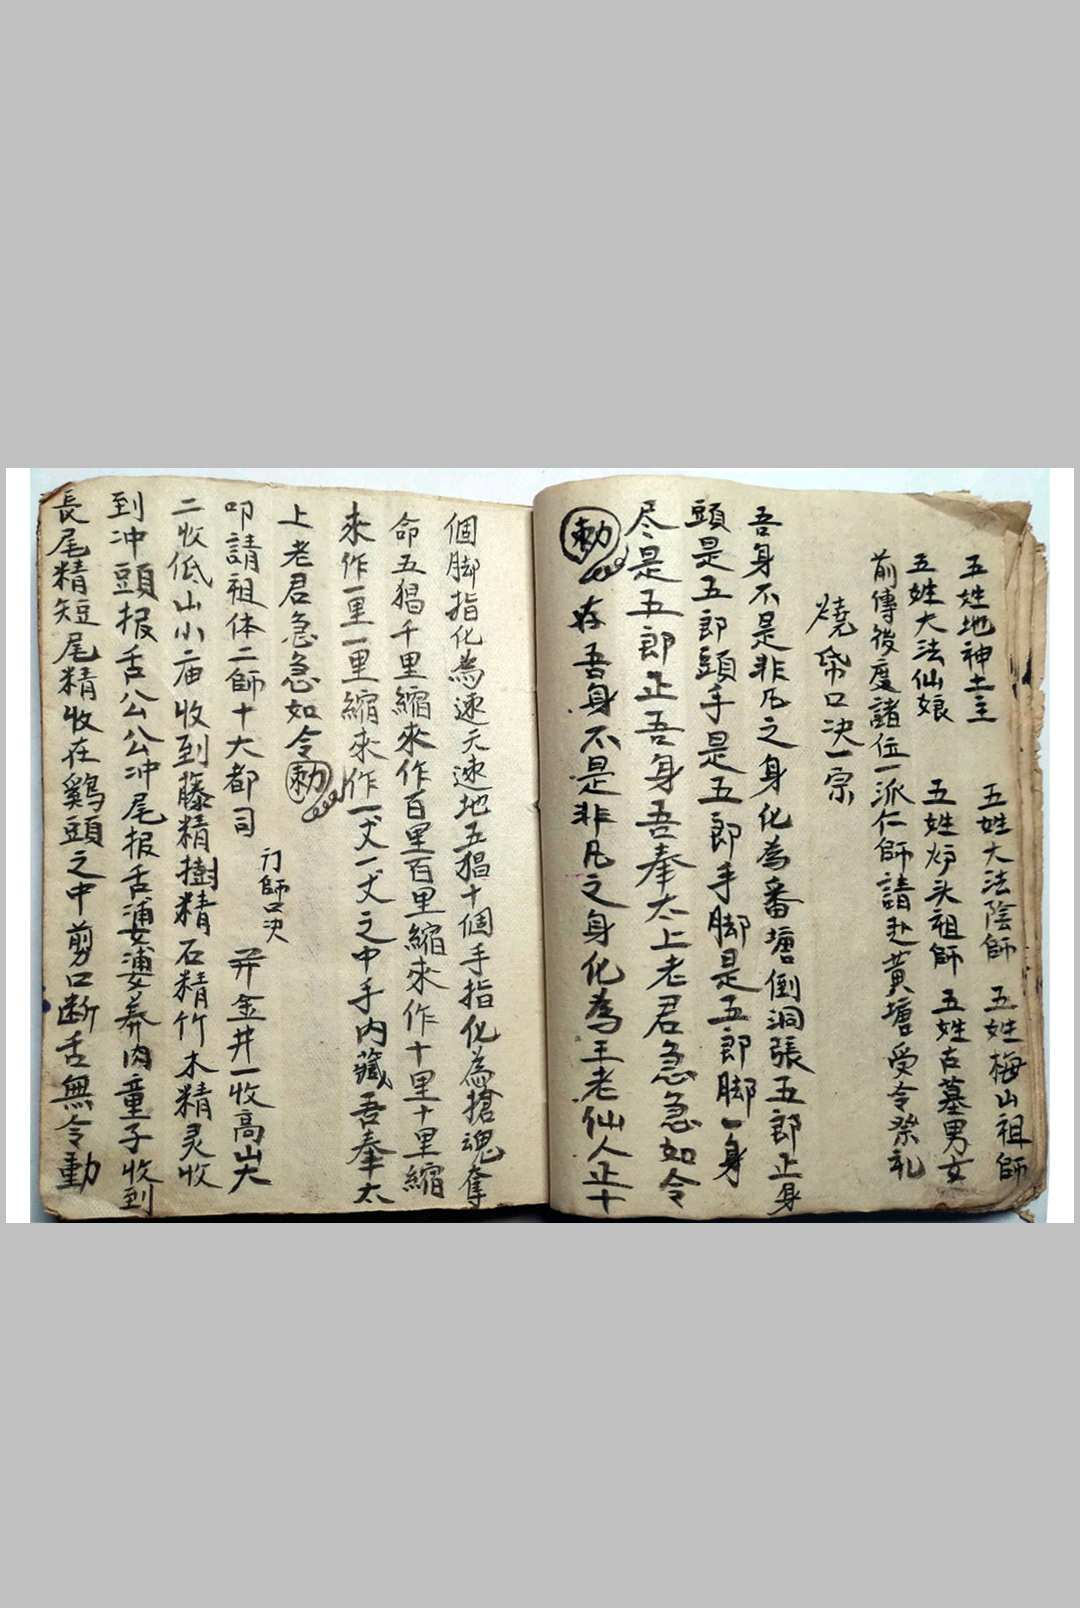 五姓地神土主 五姓大法陰師 五姓梅山祖師
五姓大法仙娘 五姓炉头祖師 五姓古墓男女
前傳後度諸位一派仁師請赴黃壇受令祭礼
燒帋口决一宗
吾身不是非凡之身化為番壇倒洞張五郎正身
頭是五郎頭手是五郎手脚是五郎脚一身
尽是五郎正吾身吾奉太上老君急急如令
勅 存吾身不是非凡之身化為王老仙人正十
個脚指化為速天速地五猖十個手指化為搶魂奪
命五猖千里縮來作百里百里縮來作十里十里縮
來作一里一里縮來作一丈一丈之中手內藏吾奉太
上老君急急如令勅
行師口决
叩請祖体二師十大都司 開金井一收高山大
二收低山小庙收到藤精樹精石精竹木精灵收
到冲頭报舌公公冲尾报舌婆婆养肉童子收到
長尾精短尾精收在鷄頭之中剪口断舌無令動